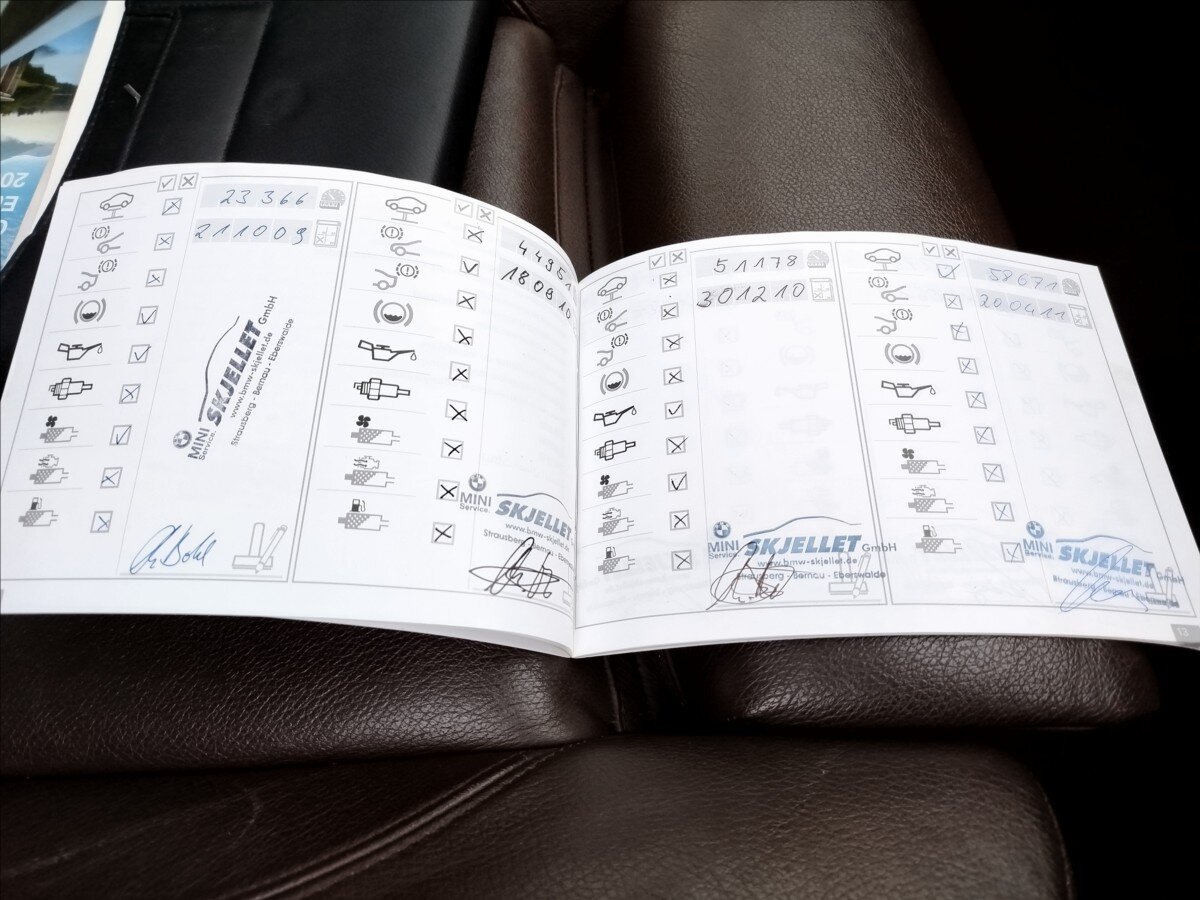 23366
211009
MINI
Service.
SKJELLET GmbH
www.bmw-skjellet.de
Strausberg - Bernau - Eberswalde
44951
180910
MINI
Service.
SKJELLET
www.bmw-skjellet.de
51178
301210
MINI
Service.
SKJELLET GmbH
www.bmw-skjellet.de
Strausberg - Bernau - Eberswalde
58671
200411
MINI
Service.
SKJELLET GmbH
www.bmw-skjellet.de
Strausberg - Bernau - Eberswalde
13